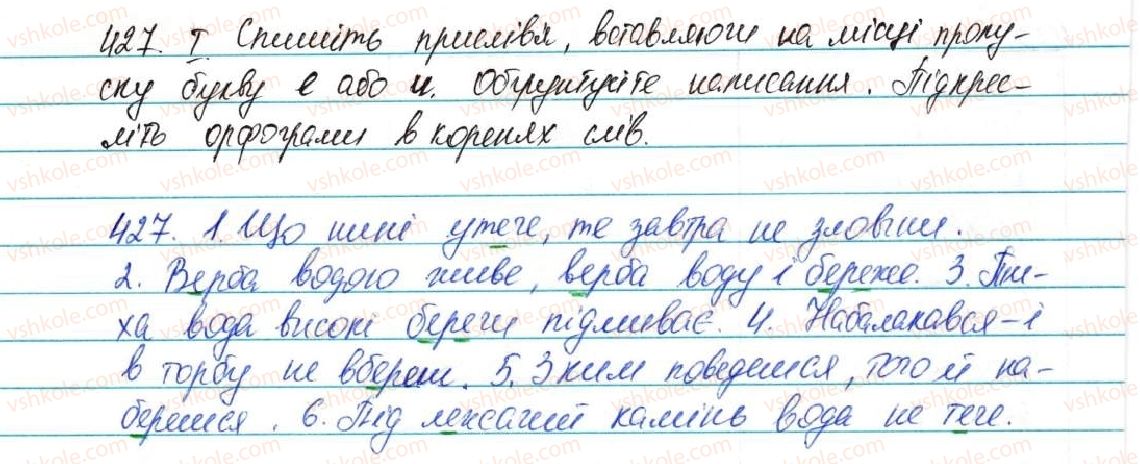 427. I Спишіть прислівя, вставляючи на місці пропу-
ску букву е або и. Обґрунтуйте написання. Підкрес-
літь орфограми в коренях слів.
427. 1. Що нині утече, те завтра не зловиш.
2. Верба водою живе, верба воду і береже. 3. Ти-
ха вода високі береги підмиває. 4. Набалакався – і
в торбу не вбереш. 5. З ким поведешся, того й на-
берешся. 6. Під лежачий камінь вода не тече.